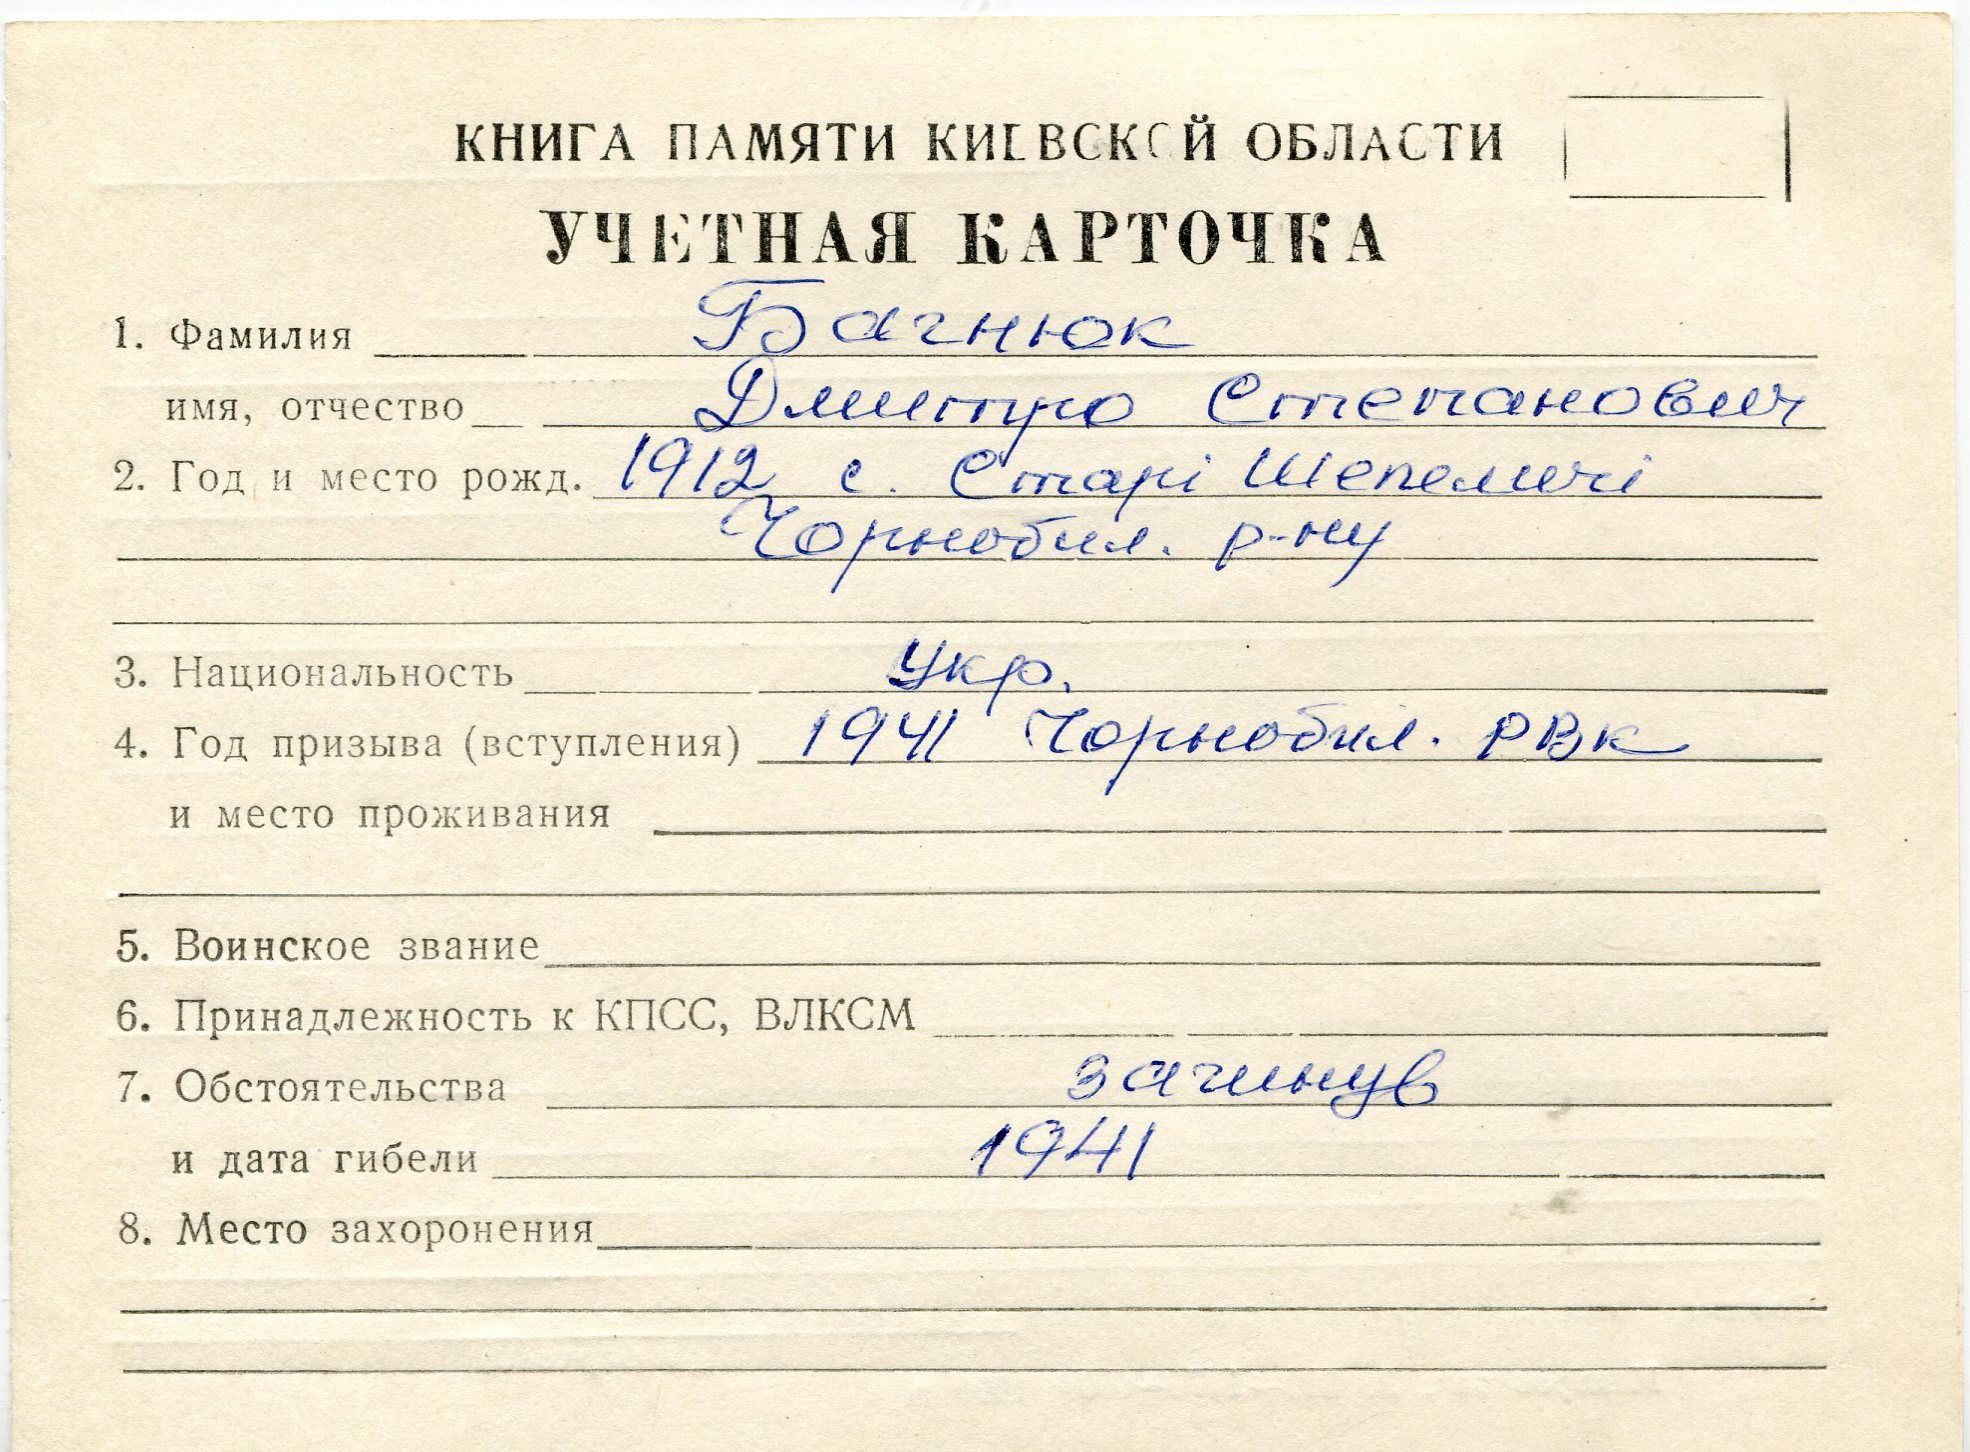 КНИГА ПАМЯТИ КИЕВСКОЙ ОБЛАСТИ
УЧЕТНАЯ КАРТОЧКА
1. Фамилия Багнюк
имя, отчество Дмитро Степанович
2. Год и место рожд. 1912 с. Старі Шепеличі
Чорнобил. р-ну
3. Национальность Укр.
4. Год призыва (вступления) 1941 Чорнобил. РВК
и место проживания
5. Воинское звание
6. Принадлежность к КПСС, ВЛКСМ
7. Обстоятельства загинув
и дата гибели 1941
8. Место захоронения